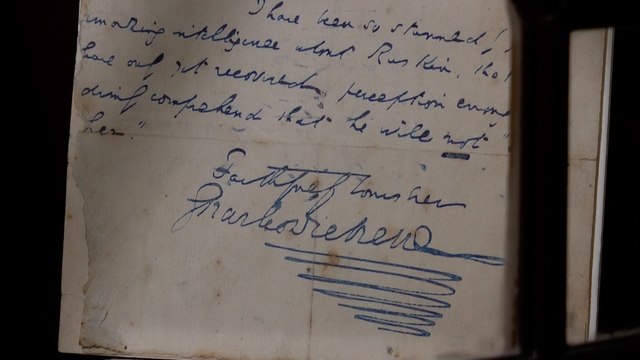 I have been so stunned by
amazing intelligence about Ruskin, that
have only yet recovered perception enough
dimly comprehend that he will not "
her."
Faithfully Yours ever
Charles Dickens